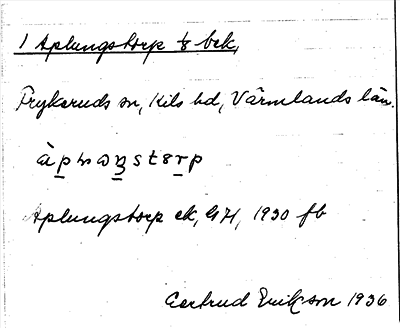 1 Aplungstorp 1/8 bek,
Frykeruds sn, Kils hd, Värmlands län.
Aplungstorp ek, G H, 1930 fb
Gertrud Erikson 1936